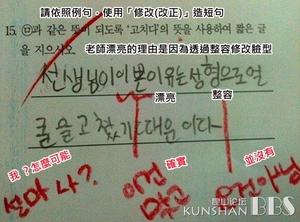 請依照例句,使用「修改(改正)」造短句
15. ㉤과 같은 뜻이 되도록 '고치다'의 뜻을 사용하여 짧은 글을 지으시오.
老師漂亮的理由是因為透過整容修改臉型
선생님이 이쁜 이유는 성형으로 얼
漂亮
整容
굴을 고쳤기 때문이다
我?怎麼可能
確實
並沒有
설마 나?
이건 맞고
이건 아님
昆山论坛
KUNSHAN BBS